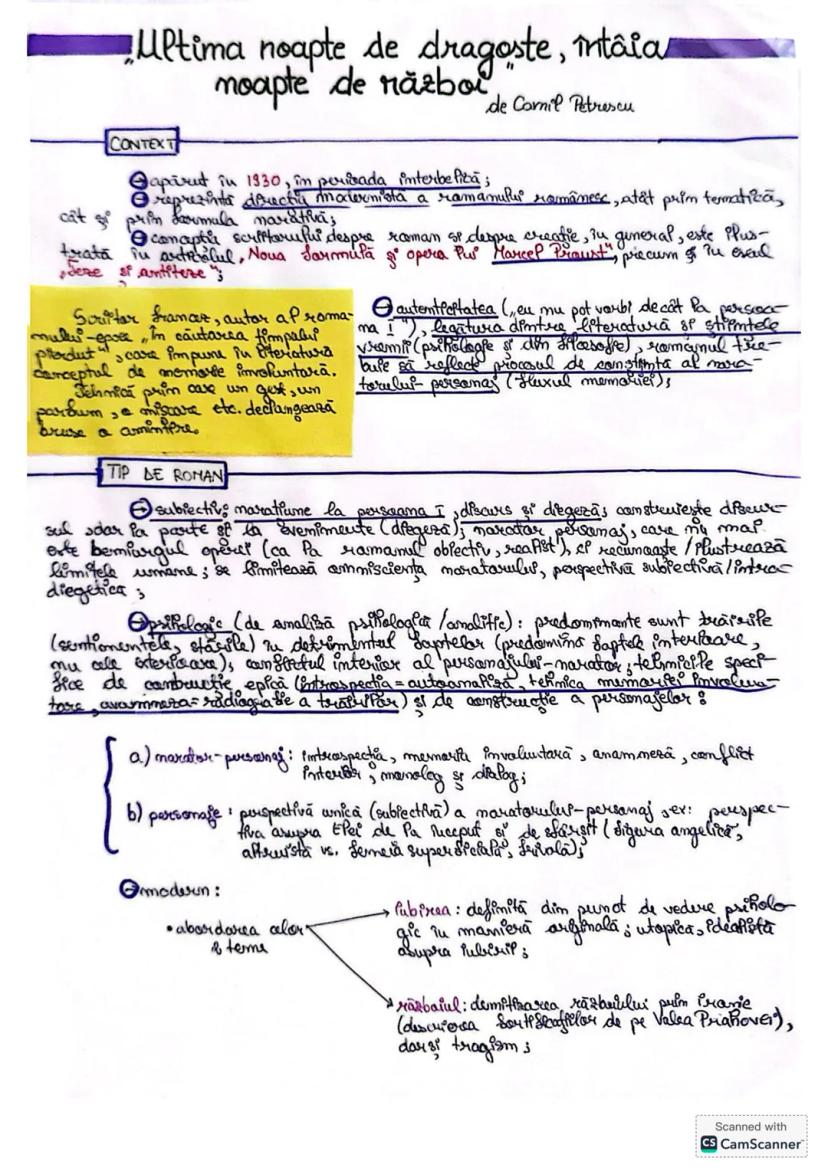 „Ultima noapte de dragoste, întâia
noapte de război"
de Camil Petrescu
CONTEXT
apărut în 1930, în perioada interbelică;
reprezintă direcția modernistă a romanului românesc, atât prin tematică,
cât și prin formula narativă;
concepția scriitorului despre roman și despre creație, în general, este ilus-
trată în articolul „Noua formulă și opera lui Marcel Proust", precum și în eseul
„Teze și antiteze";
Scriitor francez, autor al roma-
nului-epos „În căutarea timpului
pierdut", care impune în literatură
conceptul de memorie involuntară.
Tehnică prin care un gest, un
parfum, o mișcare etc. declanșează
brusc o amintire.
autenticitatea („eu nu pot vorbi decât la persoa-
na I"), legătura dintre literatură și științele
vremii (psihologie și din filosofie), romanul tre-
buie să reflecte procesul de conștiință al nara-
torului-personaj (fluxul memoriei);
TIP DE ROMAN
subiectiv: narațiune la persoana I, discurs și diegeză; construiește discur-
sul, dar ia parte și la evenimente (diegeză); narator personaj, care nu mai
este demiurgul operei (ca la romanul obiectiv, realist), ci recunoaște/ilustrează
limitele umane; se limitează omnisciența naratorului, perspectivă subiectivă/intra-
diegetică;
psihologic (de analiză psihologică/analitic): predominante sunt trăirile
(sentimentele, stările) în detrimentul faptelor (predomină faptele interioare,
nu cele exterioare); conflictul interior al personajului-narator; tehnicile speci-
fice de construcție epică (introspecția=autoanaliză, tehnica memoriei involun-
tare, anamneza=radiografie a trăirilor) și de construcție a personajelor:
a) narator-personaj: introspecția, memoria involuntară, anamneză, conflict
interior, monolog și dialog;
b) personaje: perspectivă unică (subiectivă) a naratorului-personaj, ex: perspec-
tiva asupra Elei de la început și de sfârșit (figura angelică,
altruistă vs. femeia superficială, frivolă);
modern:
• abordarea celor
2 teme
iubirea: definită din punct de vedere psiholo-
gic în manieră originală; utopică, idealistă
asupra iubirii;
războiul: demitizarea războiului prin ironie
(descrierea fortificațiilor de pe Valea Prahovei),
dar și tragism;
Scanned with
CS CamScanner